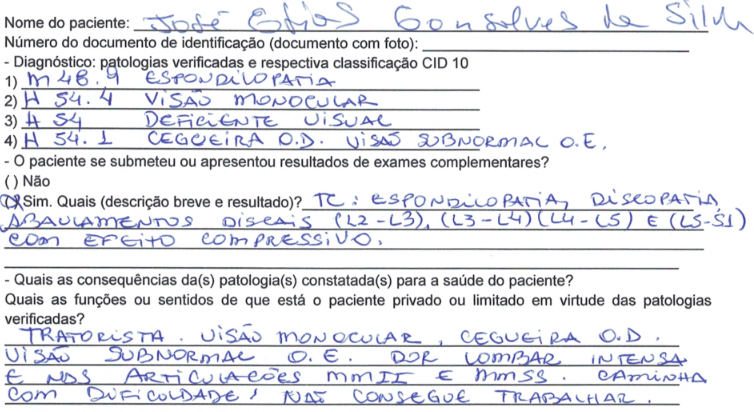 Nome do paciente: José Elias Gonsalves da Silva
Número do documento de identificação (documento com foto):
- Diagnóstico: patologias verificadas e respectiva classificação CID 10
1) M 48.9 ESPONDILOPATIA
2) H 54.4 VISÃO MONOCULAR
3) H 54 DEFICIENTE VISUAL
4) H 54.1 CEGUEIRA O.D. VISÃO SUBNORMAL O.E.
- O paciente se submeteu ou apresentou resultados de exames complementares?
( ) Não
(X) Sim. Quais (descrição breve e resultado)? TC: ESPONDILOPATIA, DISCOPATIA,
ABAULAMENTOS DISCAIS (L2-L3), (L3-L4) (L4-L5) E (L5-S1)
COM EFEITO COMPRESSIVO.
- Quais as consequências da(s) patologia(s) constatada(s) para a saúde do paciente?
Quais as funções ou sentidos de que está o paciente privado ou limitado em virtude das patologias
verificadas?
TRATORISTA. VISÃO MONOCULAR, CEGUEIRA O.D.
VISÃO SUBNORMAL O.E. DOR LOMBAR INTENSA
E NAS ARTICULAÇÕES MMII E MMSS. CAMINHA
COM DIFICULDADE, NÃO CONSEGUE TRABALHAR.